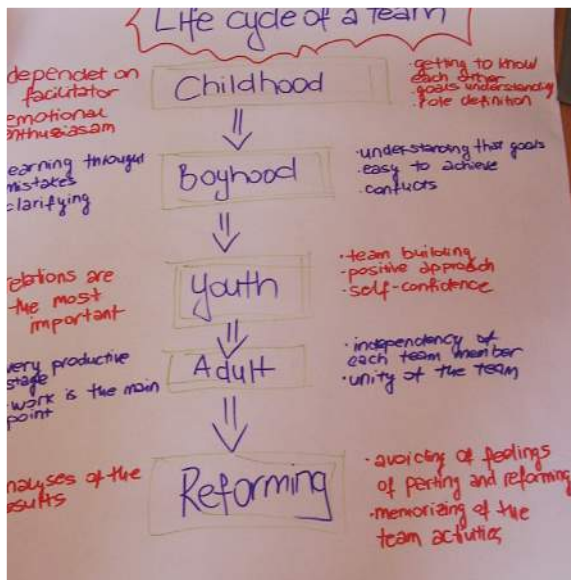 Life cycle of a team
dependet on
facilitator
emotional
enthusiasam
Childhood
· getting to know
each other
· goals understanding
· role definition
learning throught
mistakes
clarifying
Boyhood
· understanding that goals
· easy to achieve
· conflicts
relations are
the most
important
Youth
· team building
· positive approach
· self-confidence
very productive
stage
· work is the main
point
Adult
· independency of
each team member
· unity of the team
analyses of the
results
Reforming
· avoicting of feelings
of perting and reforming
· memorizing of the
team activities